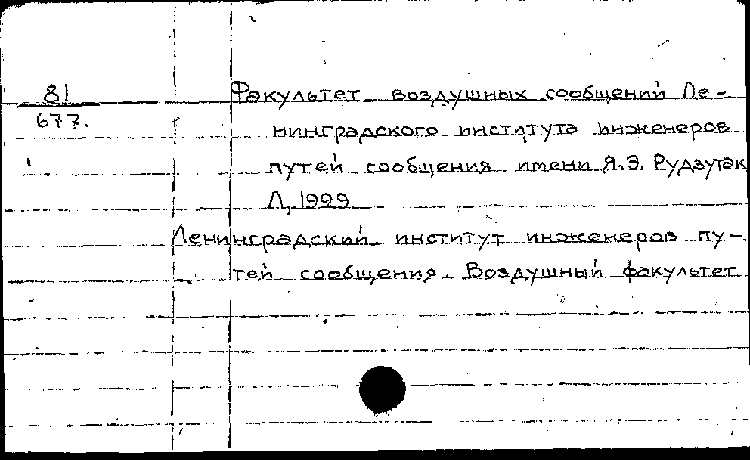 81
677.
Факультет воздушных сообщений Ле-
нинградского института инженеров
путей сообщения имени Я.Э. Рудзутак
Л, 1929
Ленинградский институт инженеров пу-
тей сообщения. Воздушный факультет